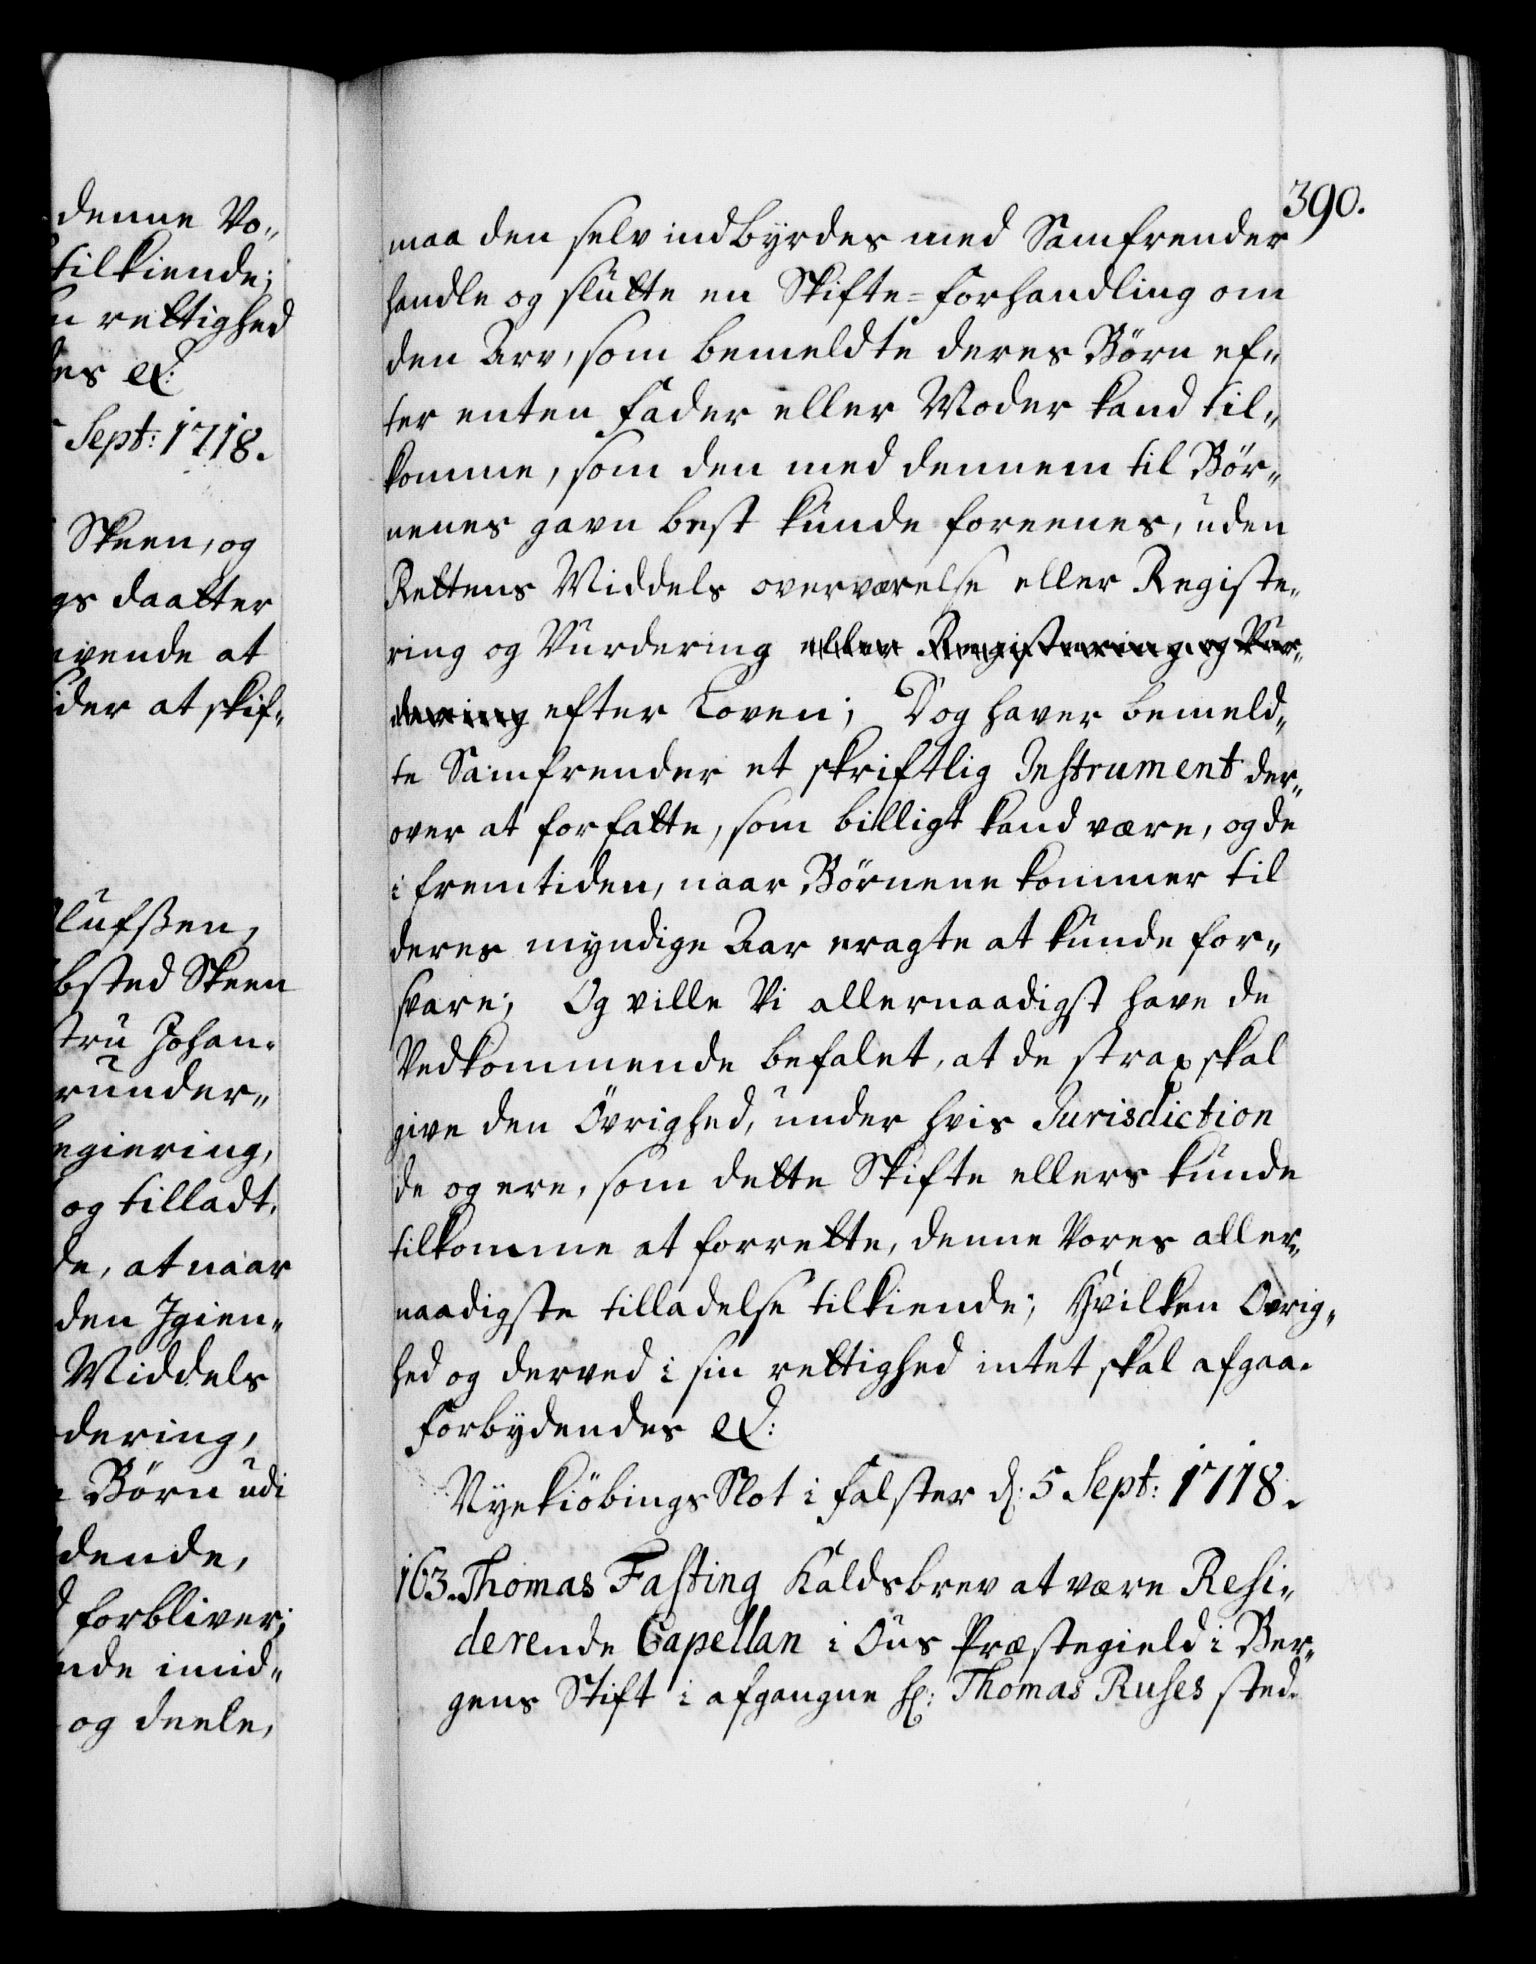 denne Vo„
tilkiende;
rettighed
es &:
Sept: 1718.
Skeen, og
gs daatter
ivende at
ider at skif„
lufsßen,
bsted Skeen
tru Johan„
runder„
egiering,
og tilladt.
de, at naar
den Igien„
Middels
dering,
Börn udi
dende,
forbliver;
nde imid„
og deele,
390.
maa den selv indbÿrdes med Samfrender
handle og slutte en Skifte=forhandling om
den Arv, som bemeldte deres Börn ef„
ter enten Fader eller Moder kand til„
komme, som den med dennem til Bör„
nenes gavn best kunde foreenes, uden
Rettens Middels overværelse eller Registe„
ring og Vurdering eller Registering og Vur„
dering efter Loven; Dog haver bemeld„
te Samfrender et skriftlig Instrument der„
over at forfatte, som billigt kand være, og de
i fremtiden, naar Börnene kommer til
deres myndige Aar eragte at kunde for„
svare; Og ville Vi allernaadigst have de
Vedkommende befalet, at de strax skal
give den Övrighed, under hvis Jurisdiction
de og ere, som dette Skifte ellers kunde
tilkomme at forrette, denne Vores aller„
naadigste tilladelse tilkiende; Hvilken Ovrig„
hed og derved i sin rettighed intet skal afgaa.
Forbydendes &:
Nyekiöbings Slot i Falster d: 5 Sept: 1718.
163. Thomas Fasting Kaldsbrev at være Resi„
derende Capellan i Ous Præstegield i Ber„
gens Stift i afgangne Hr: Thomas Ruses sted.